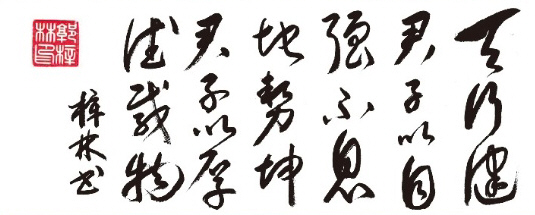 天行健
君子以自
强不息
地势坤
君子以厚
德载物
梓林书
郭梓
林印